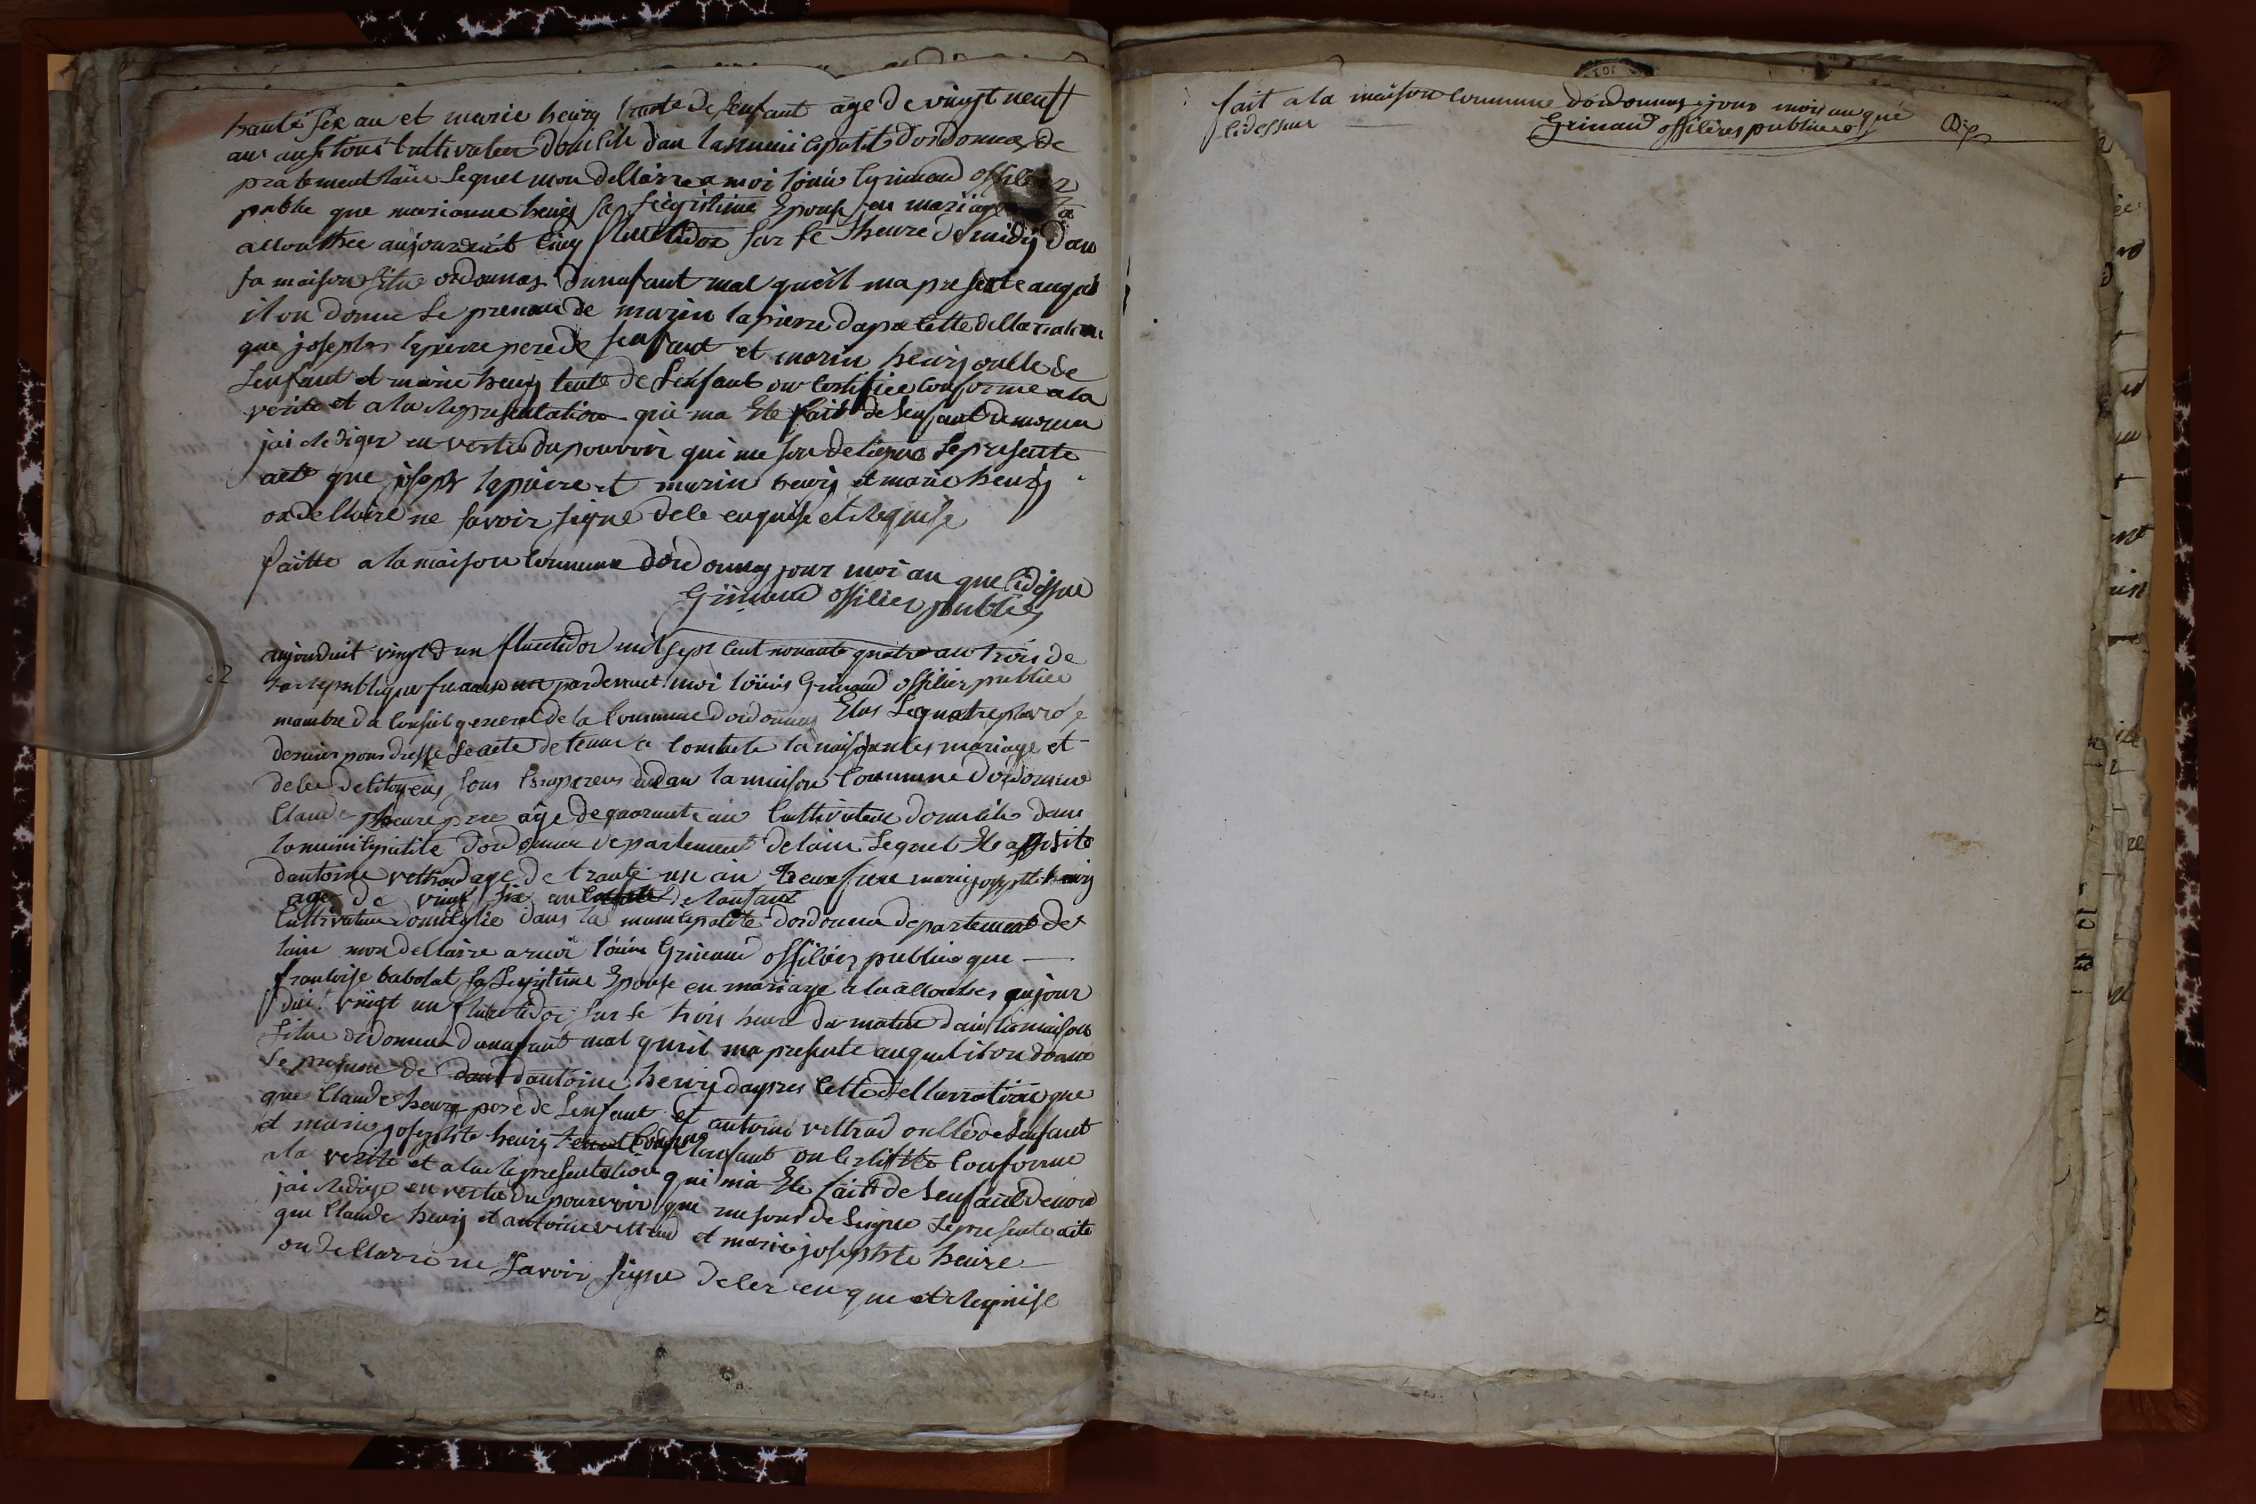 trante six an et marie henry tante de lenfant age de vingt neuf
an ausi tous cultivateur domicile dan la municipalite dordonnas de
pratement lain lequel mon dellaire a moi louis Grinand offilier
public que marianne henry sa legistime Epouse en mariage
allouchee aujourduit cinq fluctidor sur le heure de midy dan
sa maison situe ordonnas dunnfant mal queil ma presente auquel
il on donne le prenom de marin lapierre dapre lette dellaration
que joseph lapierre pere de lenfant et marin henry onlle de
lenfant et marie henry tente de lenfant on certifiee conforme a la
verite et a la representation qui ma Ete fait de lenfant denomme
jai rediger en vertu du pouvoir qui me son deligue le presente
acte que joseph lapierre et marin henry et marie henry
on dellaire ne savoir signe dele enquise et requise
faitte a la maison commune dordonnas jour moi an que cidessue
Grinand offilier publice
2
aujourduit vingt un fluctidor mil sept cent nonante quatre an trois de
la republique francaise pardevant moi louis Grinand offilier publice
membre du conseil general de la commune dordonnas Elus le quatre pluviose
dernier pour dresse le acte detenue a constate la naissances mariage et
dele de litoyens sons comparens dan la maison commune dordonna
Claude henre pere age de quarante an cultivateur domicile dans
la municipalite dordonna departement de lain lequel Ete assiste
dantoine vettard age de trante un an marie josephte henry
age de vingt six an de lanfant
cultivateur domicilie dans la municipalite dordonna departement de
lain mon dellaire a moi louis Grinand offilier publice que
francoise babolat sa legistime Epouse en mariage a la allouchee aujour
dui vingt un fluctidor sur le trois heure du matin dan sa maison
situe ordonna dunnfant mal queil ma presente auquel il on donne
le prenom de dantoine henry dapres lette dellaration que
que Claude henre pere de lenfant et antoine vettard onlle de lenfant
et marie josephte henry lenfant on certifie conforme
a la verite et a la representation qui ma Ete fait de lenfant denom
jai redige en vertu du pouvoir qui me sont deligue le presente acte
que Claude henry et antoine vettard et marie josephte henre
on dellare ne savoir signe deler enque et requise
fait a la maison commune dordonnas jour mois an que
cidessur
Grinand offiliers publice